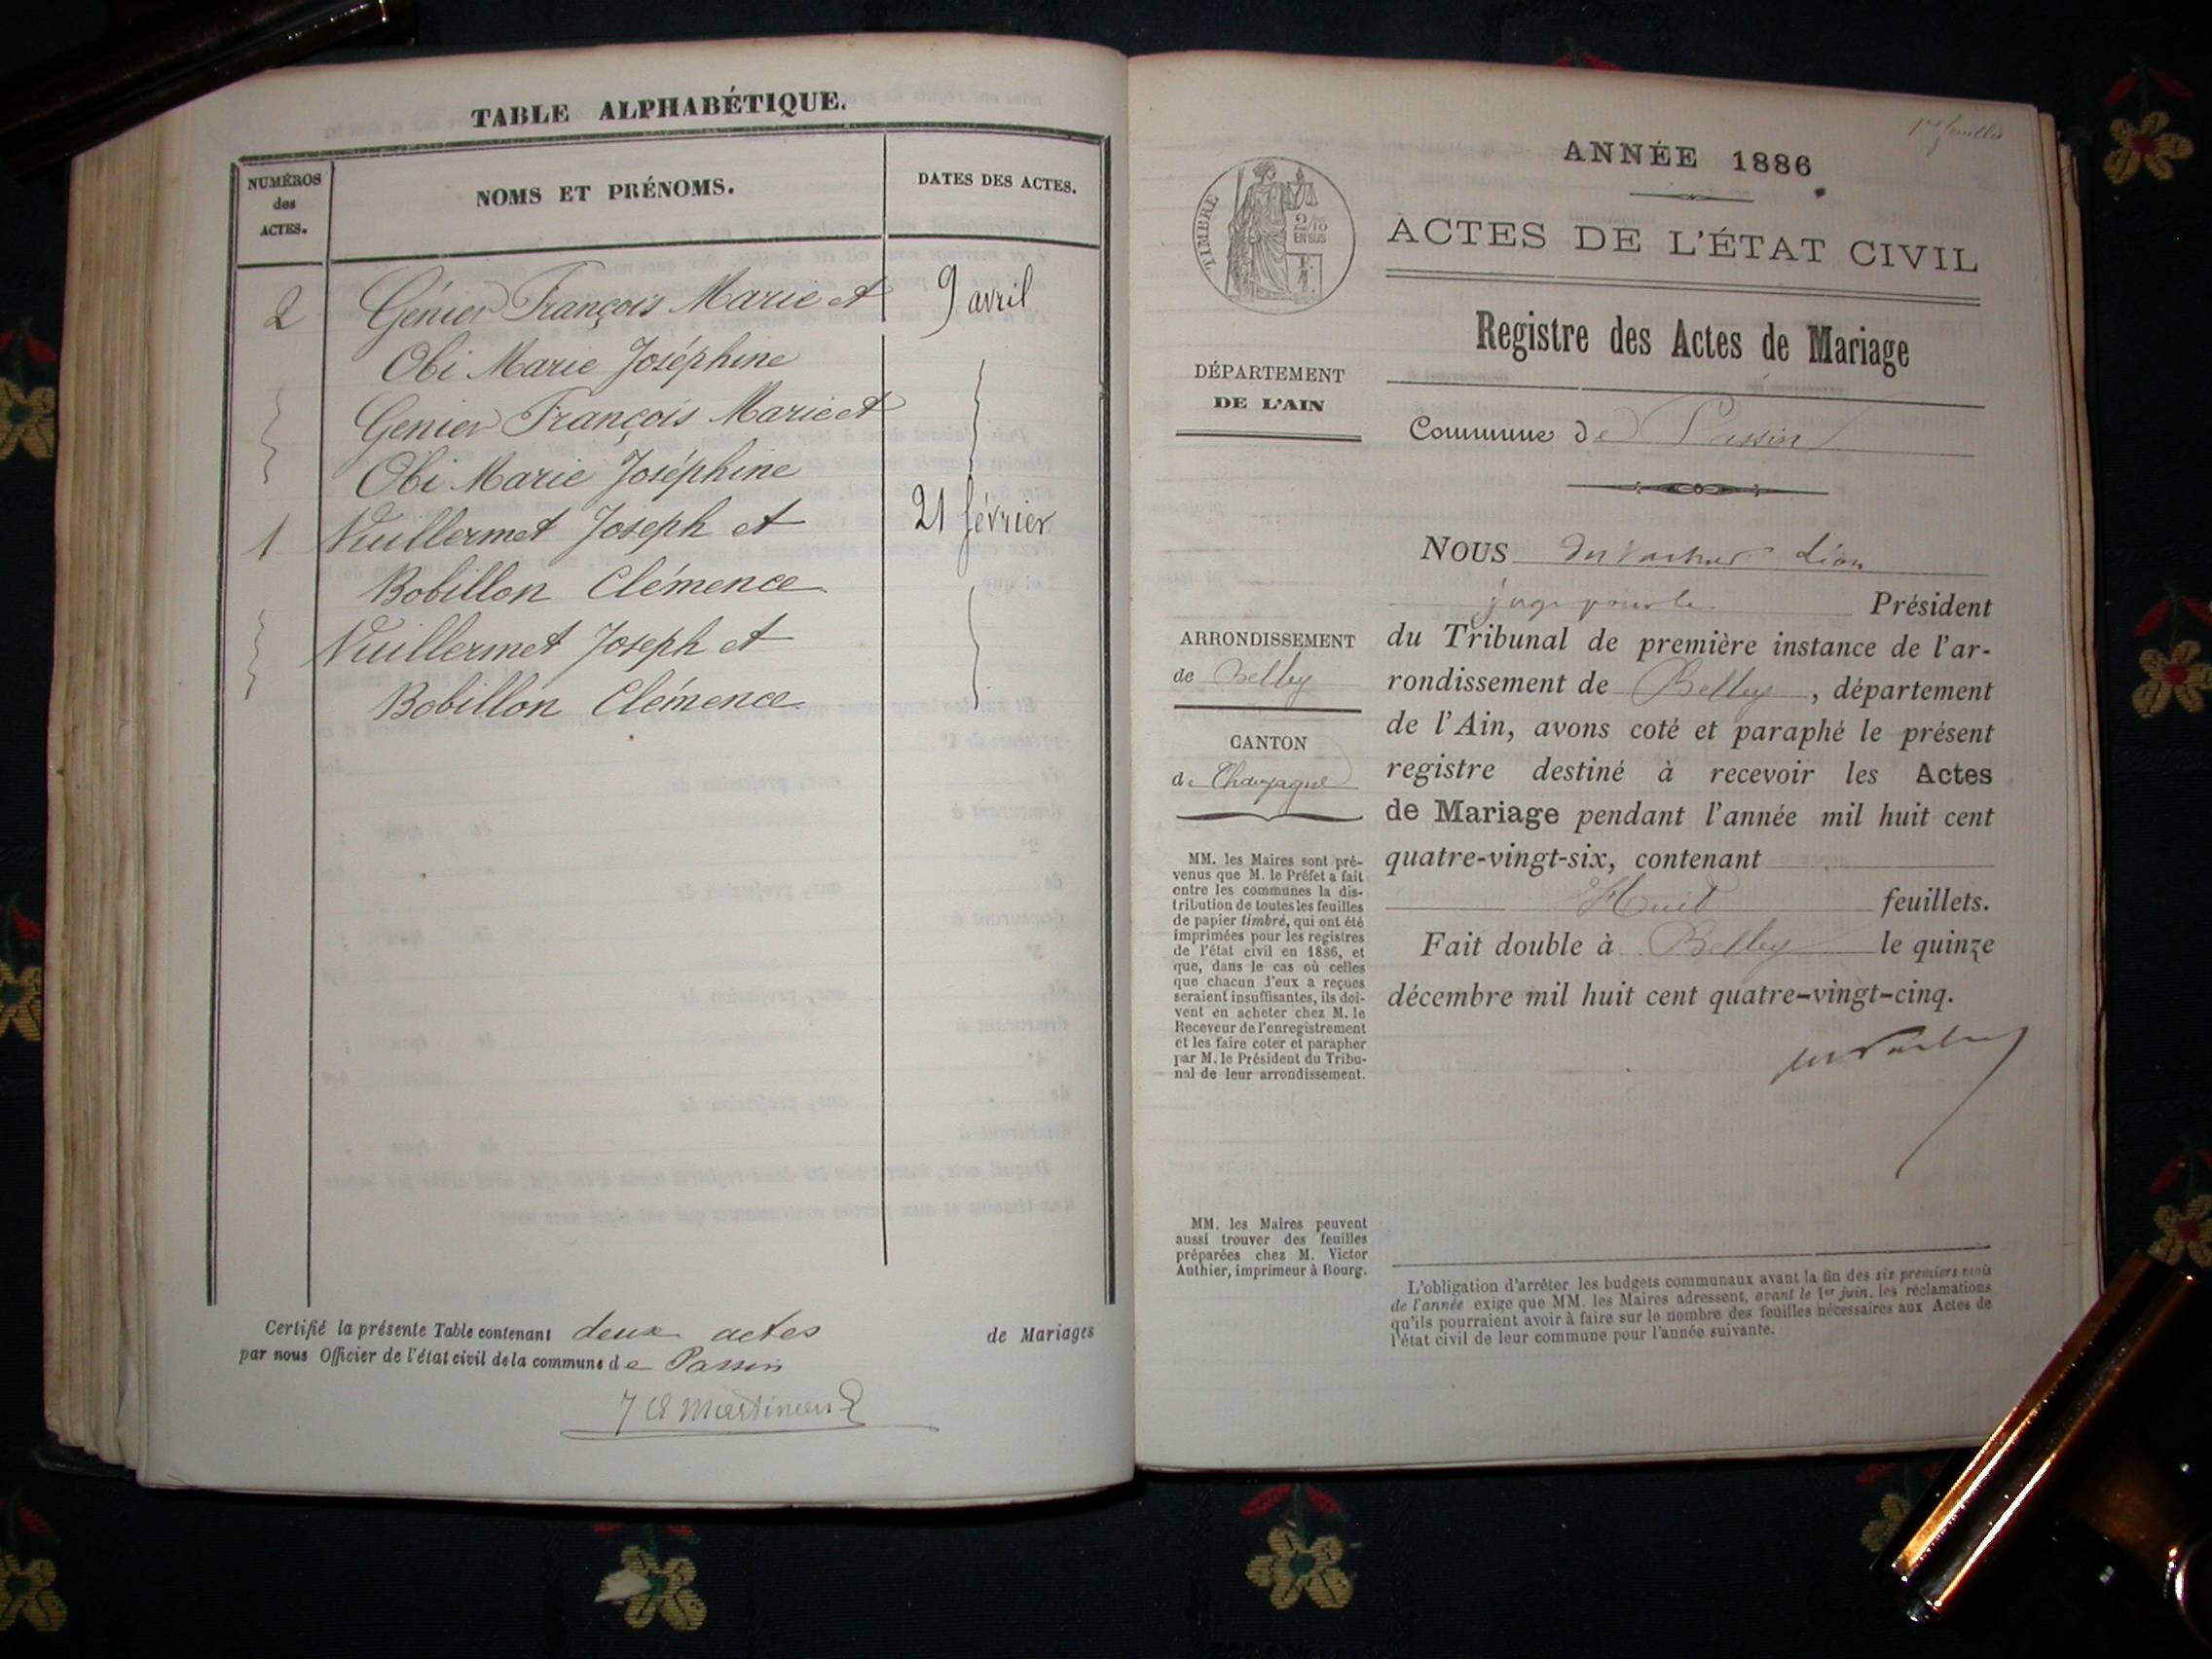 TABLE ALPHABÉTIQUE.
NUMÉROS
des
ACTES.
NOMS ET PRÉNOMS.
DATES DES ACTES.
2 Génier François Marie et 9 avril
Obi Marie Joséphine
Genier François Marie et
Obi Marie Joséphine
1 Vuillermet Joseph et 21 février
Bobillon Clémence
Vuillermet Joseph et
Bobillon Clémence
Certifié la présente Table contenant deux actes de Mariages
par nous Officier de l'état civil de la commune de Passin
1er feuillet
ANNÉE 1886
TIMBRE
2/10
EN SUS
ACTES DE L'ÉTAT CIVIL
Registre des Actes de Mariage
DÉPARTEMENT
DE L'AIN
Commune de Passin
NOUS Léon
juge pour le Président
du Tribunal de première instance de l'ar-
rondissement de Belley, département
de l'Ain, avons coté et paraphé le présent
registre destiné à recevoir les Actes
de Mariage pendant l'année mil huit cent
quatre-vingt-six, contenant
Huit feuillets.
Fait double à Belley le quinze
décembre mil huit cent quatre-vingt-cinq.
ARRONDISSEMENT
de Belley
CANTON
de Champagne
MM. les Maires sont pré-
venus que M. le Préfet a fait
entre les communes la dis-
tribution de toutes les feuilles
de papier timbré, qui ont été
imprimées pour les registres
de l'état civil en 1886, et
que, dans le cas où celles
que chacun d'eux a reçues
seraient insuffisantes, ils doi-
vent en acheter chez M. le
Receveur de l'enregistrement
et les faire coter et parapher
par M. le Président du Tribu-
nal de leur arrondissement.
MM. les Maires peuvent
aussi trouver des feuilles
préparées chez M. Victor
Authier, imprimeur à Bourg.
L'obligation d'arrêter les budgets communaux avant la fin des six premiers mois
de l'année exige que MM. les Maires adressent, avant le 1er juin, les réclamations
qu'ils pourraient avoir à faire sur le nombre des feuilles nécessaires aux Actes de
l'état civil de leur commune pour l'année suivante.